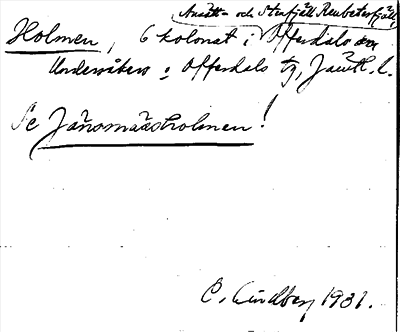 Ansätt- och Stenfjäll Renbetesfjäll,
Holmen, 6 kolonat i Offerdals sn
Undersåkers o Offerdals tg, Jämtl. l.
Se Jänsmässholmen!
C. Lindberg 1931.